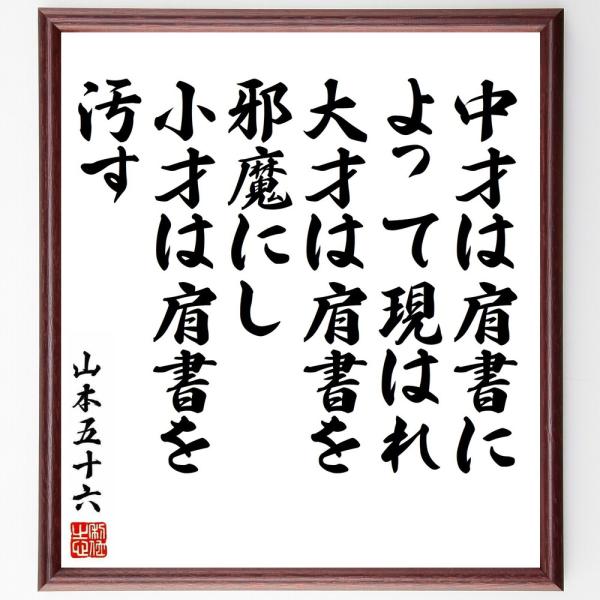 中才は肩書に
よって現はれ
大才は肩書を
邪魔にし
小才は肩書を
汚す
山本五十六